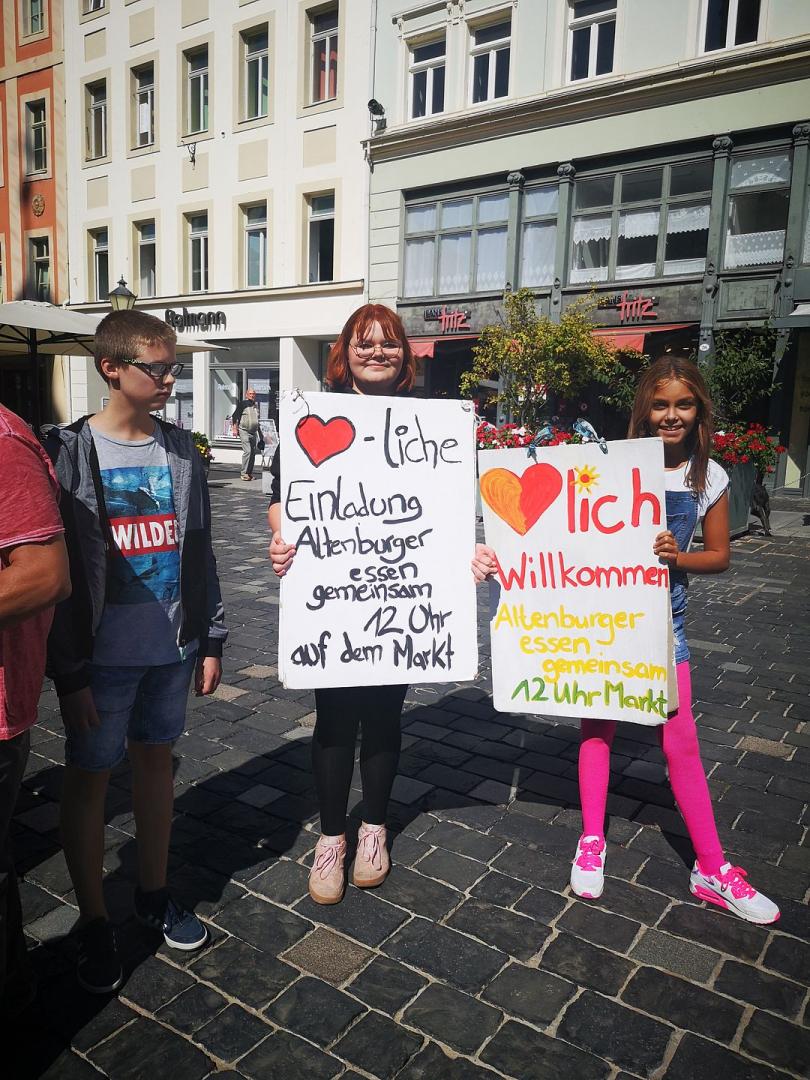 Rolmann
fritz
fritz
WILDE
-liche
Einladung
Altenburger
essen
gemeinsam
12 Uhr
auf dem Markt
lich
Willkommen
Altenburger
essen
gemeinsam
12 Uhr Markt